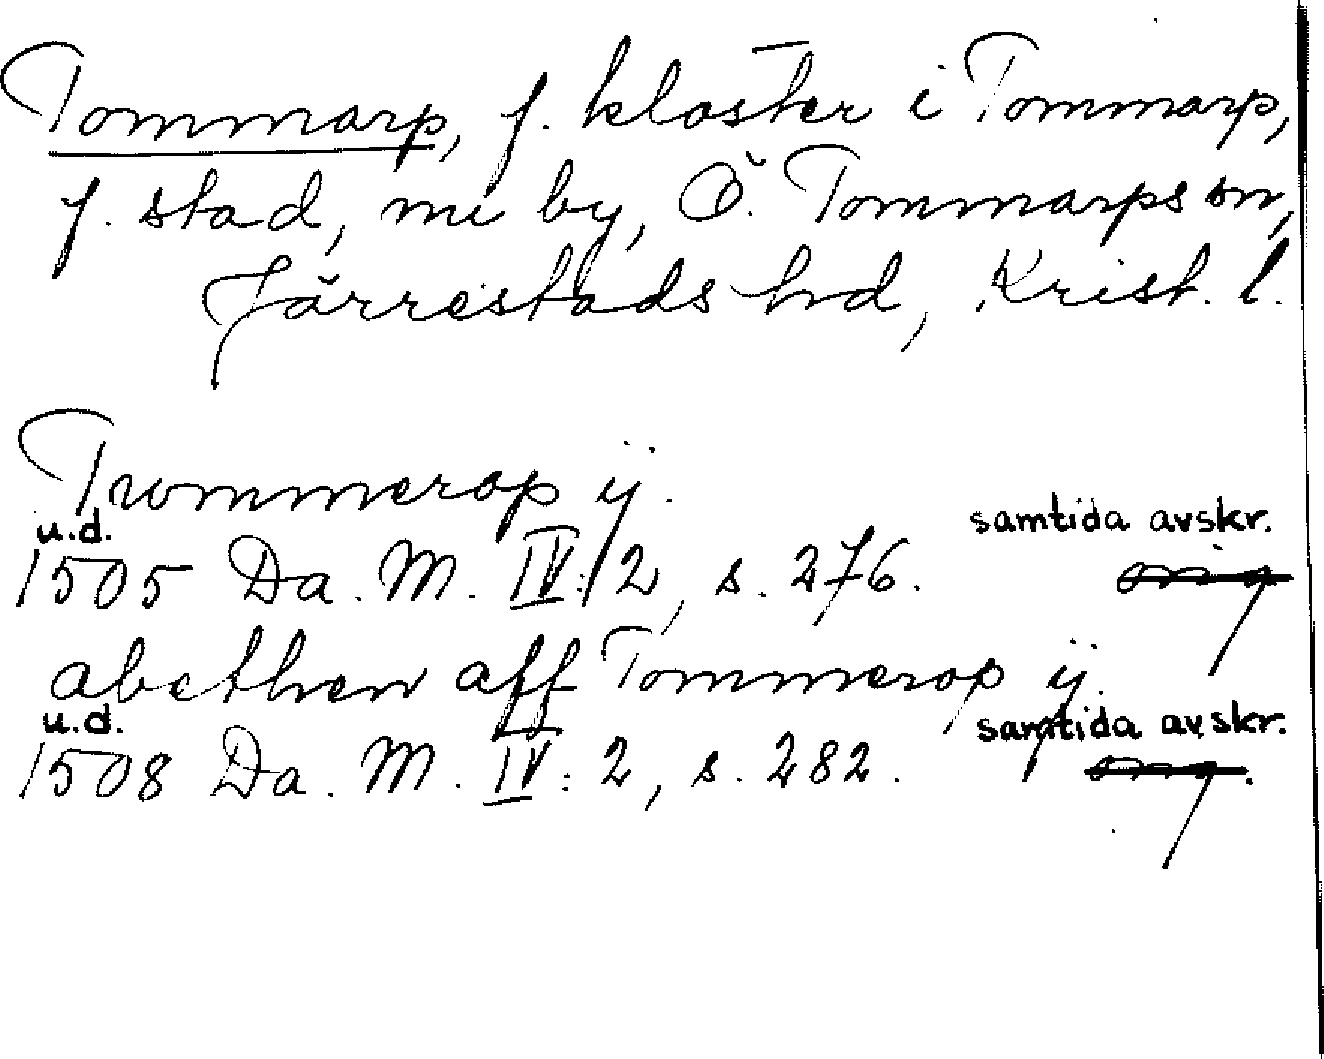 Tommarp, f. kloster i Tommarp,
f. stad, nu by, Ö. Tommarps sn,
Järrestads hd, Krist. l.
Trommerop ij.
u.d. samtida avskr.
1505 Da. M. IV: 2, s. 276. orig
abethen aff Tommerop ij.
u.d. samtida avskr.
1508 Da. M. IV: 2, s. 282. orig.